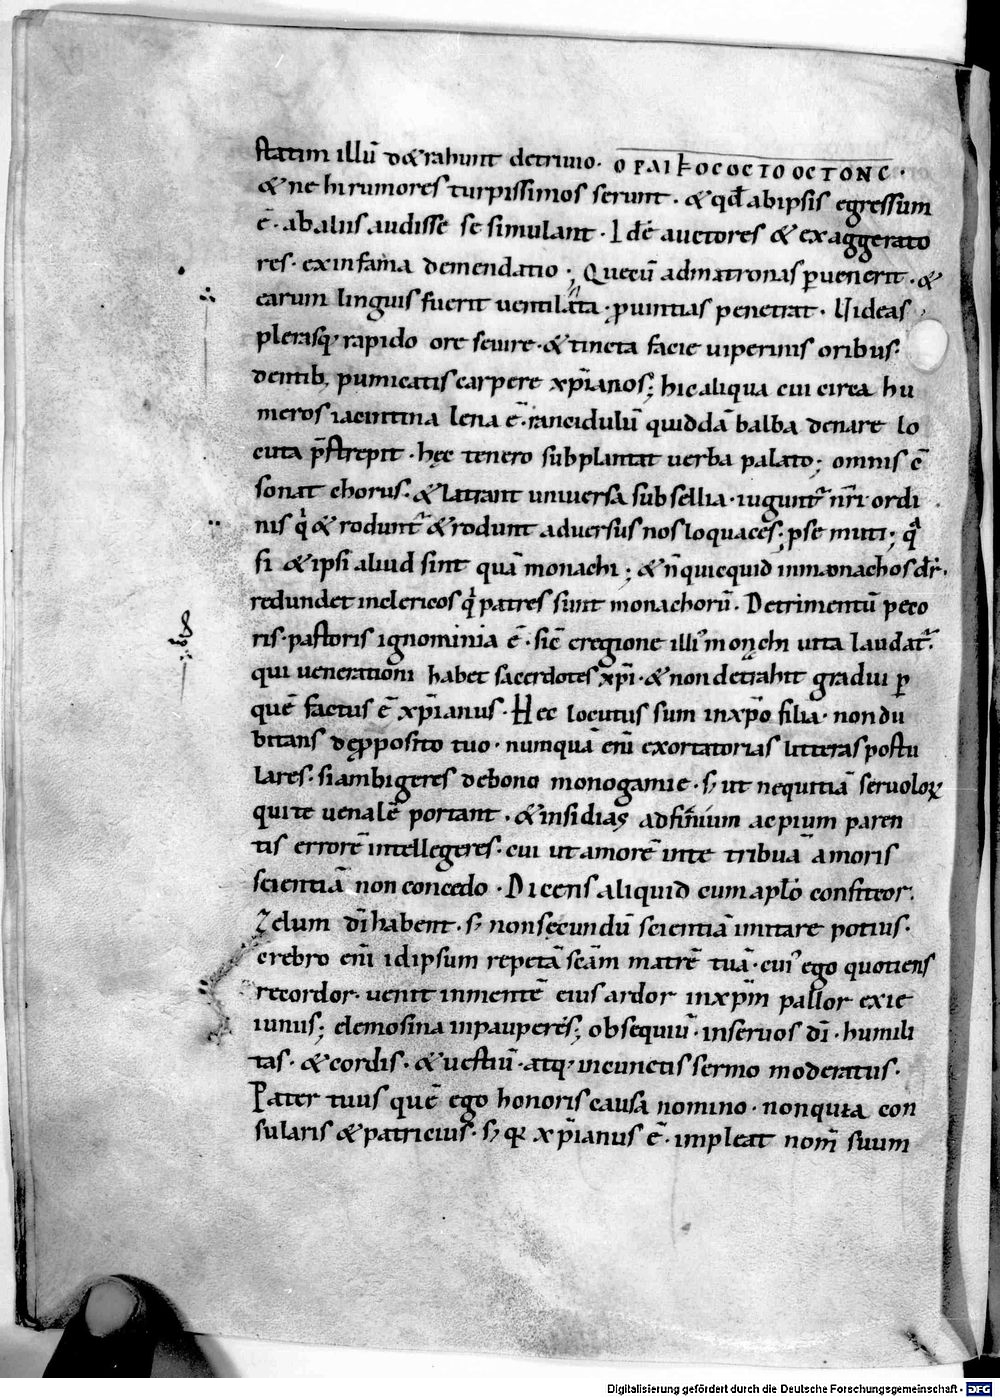 statim illū d&rahunt detrivio· ΟΡΑΙΚΟϹΟϹΤΟΟϹΤΟΝϹ·
& ne hi rumores turpissimos serunt · & qđ abipsis egressum
ē· abaliis audisse se simulant · Idē auctores & exaggerato
res· exinfamia demendatio ; Quę cū admatronas puenerit · &
earum linguis fuerit ventilata · puintias penetrat · Videas
plerasq; rapido ore sevire· & tincta facie viperinis oribus·
dentib; pumicatis carpere xp̄ianos; hic aliqua cui circa hu
meros iacintina lena ē· rancidulū quiddā balba denare lo
cuta p̄strepit · hęc tenero subplantat verba palato; omnis ē
sonat chorus· & latrant universa subsellia · iugunt̄ nr̄i ordi
nis q̇ & rodunt̄ & rodunt adversus nos loquaces; pse muti; q̄
si & ipsi aliud sint quā monachi ; & n̄ quicquid inmonachos dr̄·
redundet inclericos q̇ patres sunt monachorū · Detrimentū peco
ris· pastoris ignominia ē · sic̄ eregione illi' monchi vita laudat̄·
qui venerationi habet sacerdotes xp̄i· & non detrahit gradui p
quē factus ē xp̄ianus · Hec locutus sum inxp̄o filia· non du
bitans de pposito tuo · numquā eni exortatorias litteras postu
lares· si ambigeres de bono monogamie · s; ut nequitiā servoloꝝ
qui te venalē portant · & insidias adfiniūm ac pium paren
tis errorē intellegeres· cui ut amorē inte tribuā amoris
scientiā non concedo · Dicens aliquid cum aplo confiteor·
Zelum dī habent · s; non secundū scientiā imitare potius·
crebro eni idipsum repetā scām matrē tuā· cui' ego quotiens
recordor· venit inmentē eius ardor inxp̄m pallor exie
iuniis; elemosina inpauperes; obsequiū · inservos dī · humili
tas· & cordis · & vestiū · atq; incunctis sermo moderatus·
Pater tuus quē ego honoris causa nomino · non quia con
sularis & patricius· s; qꝛ xp̄ianus ē · impleat nom̄ suum
Digitalisierung gefördert durch die Deutsche Forschungsgemeinschaft - DFG